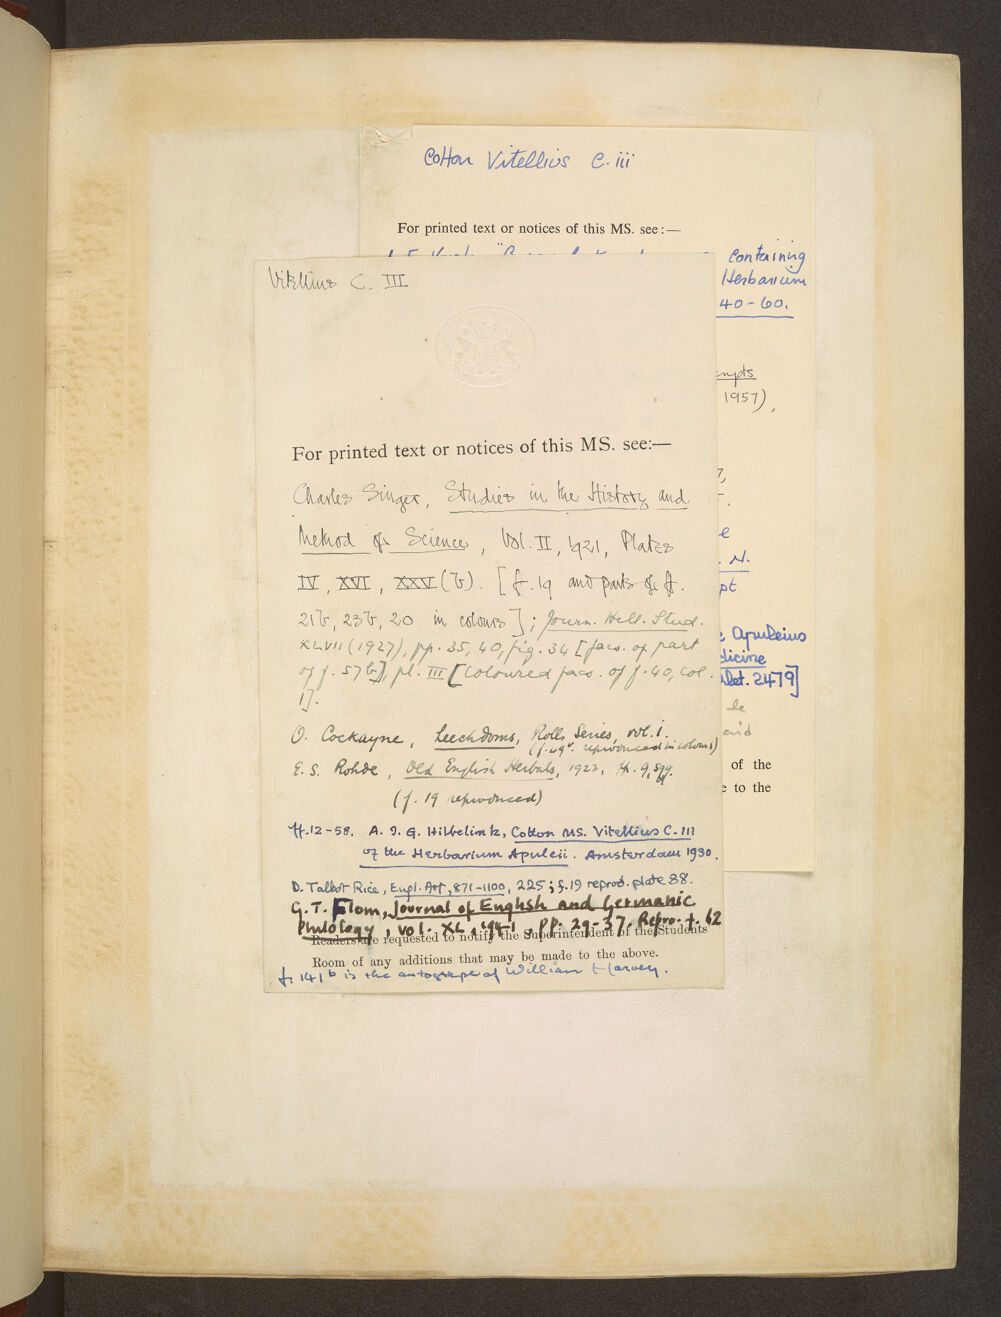 Cotton Vitellius C. iii
For printed text or notices of this MS. see:—
containing
Herbarium
40-60.
1957),
Apuleius
2479]
of the
to the
Vitellius C. III
For printed text or notices of this MS. see:—
Charles Singer, Studies in the History and
Method of Science, Vol. II, 1921, Plates
IV, XVI, XXV (b). [f. 19 and parts of ff.
21b, 23b, 20 in colours]; Journ. Hell. Stud.
XLVII (1927), pp. 35, 40, fig. 34 [facs. of part
of f. 57b], pl. III [coloured facs. of f. 40, col.
1].
O. Cockayne, Leechdoms, Rolls Series, vol. i.
(f. 19b. reproduced in colours)
E. S. Rohde, Old English Herbals, 1922, pp. 9, sqq.
(f. 19 reproduced)
ff. 12-58. A. J. G. Hilbelink, Cotton MS. Vitellius C. III
of the Herbarium Apuleii. Amsterdam 1930.
D. Talbot Rice, Engl. Art, 871-1100, 225; f. 19 reprod. plate 88.
G. T. Flom, Journal of English and Germanic
Philology, vol. XL, 1941, pp. 29-37, Repro. f. 62
Readers are requested to notify the Superintendent of the Students'
Room of any additions that may be made to the above.
f. 141b is the autograph of William Harvey.